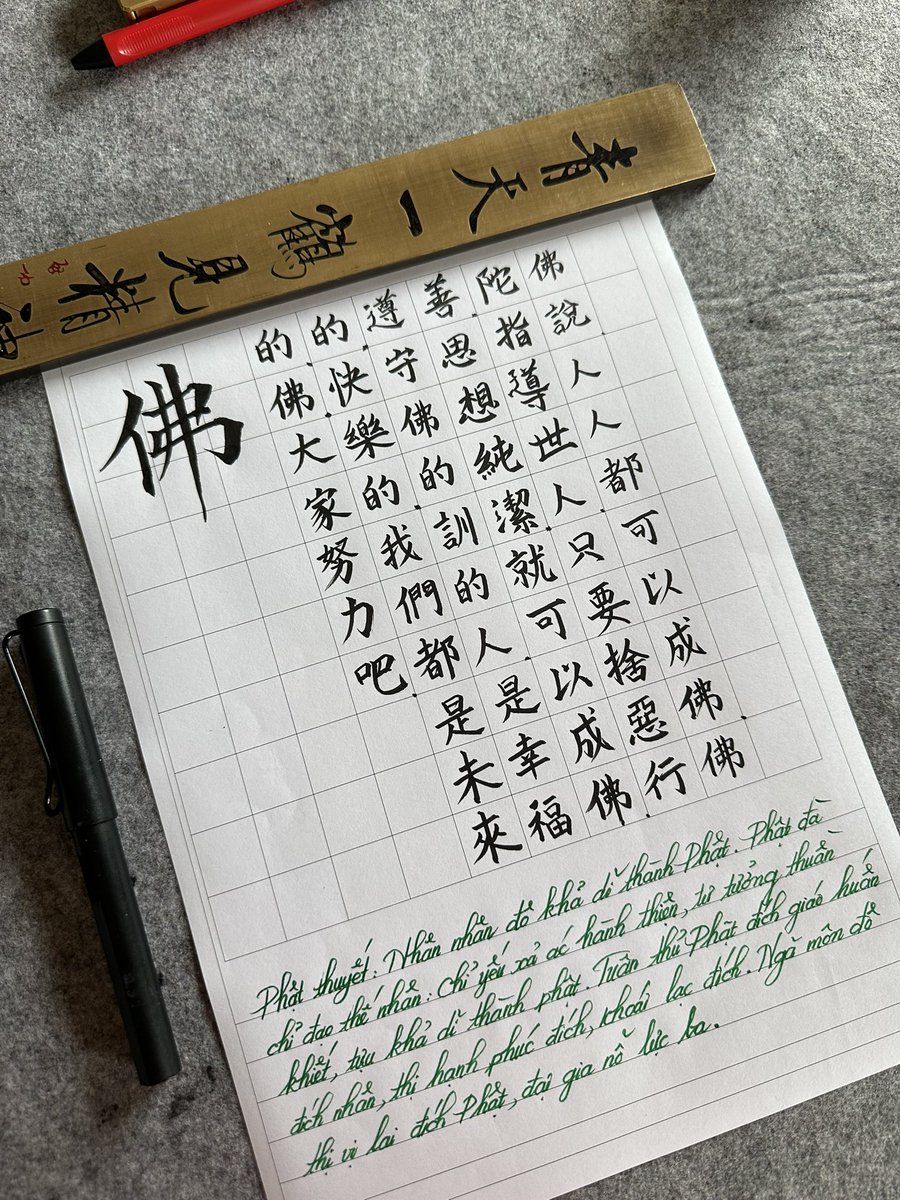 青天一鶴見精神
佛說.人人都可以成佛.佛
陀指導世人.只要捨惡行
善思想純潔.就可以成佛.
遵守佛的訓的人.是幸福
的.快樂的.我們都是未來
的.佛.大家努力吧.
佛
Phật thuyết: Nhân nhân đô khả dĩ thành Phật. Phật đà
chỉ đạo thế nhân: Chỉ yếu xả ác hành thiện, tư tưởng thuần
khiết, tựu khả dĩ thành phật. Tuân thủ Phật đích giáo huấn
đích nhân, thị hạnh phúc đích, khoái lạc đích. Ngã môn đô
thị vị lai đích Phật, đại gia nỗ lực ba.